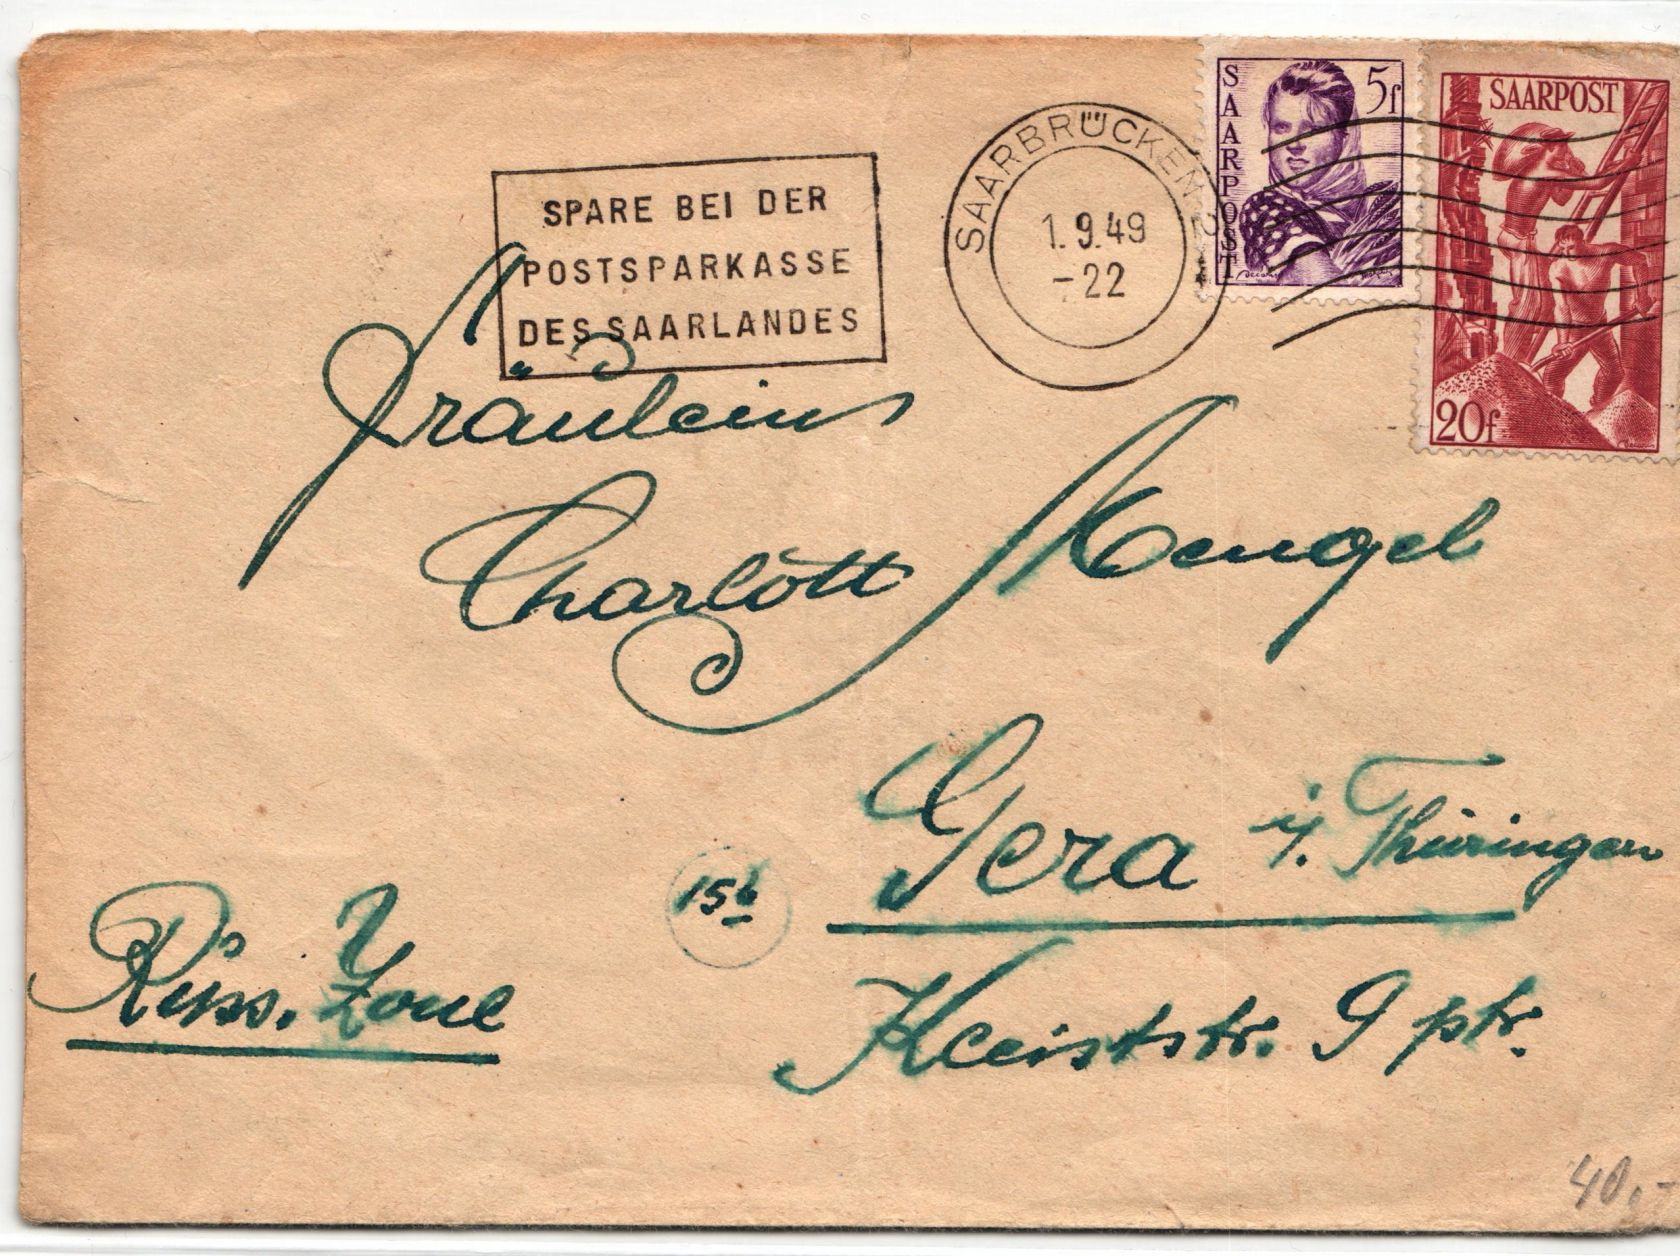 SPARE BEI DER
POSTSPARKASSE
DES SAARLANDES
SAARBRÜCKEN 2
1.9.49
-22
SAARPOST
5f
SAARPOST
20f
Fräulein
Charlott Mengel
Gera i/. Thüringen
15b
Kleiststr. 9 ptr.
Russ. Zone
40,-